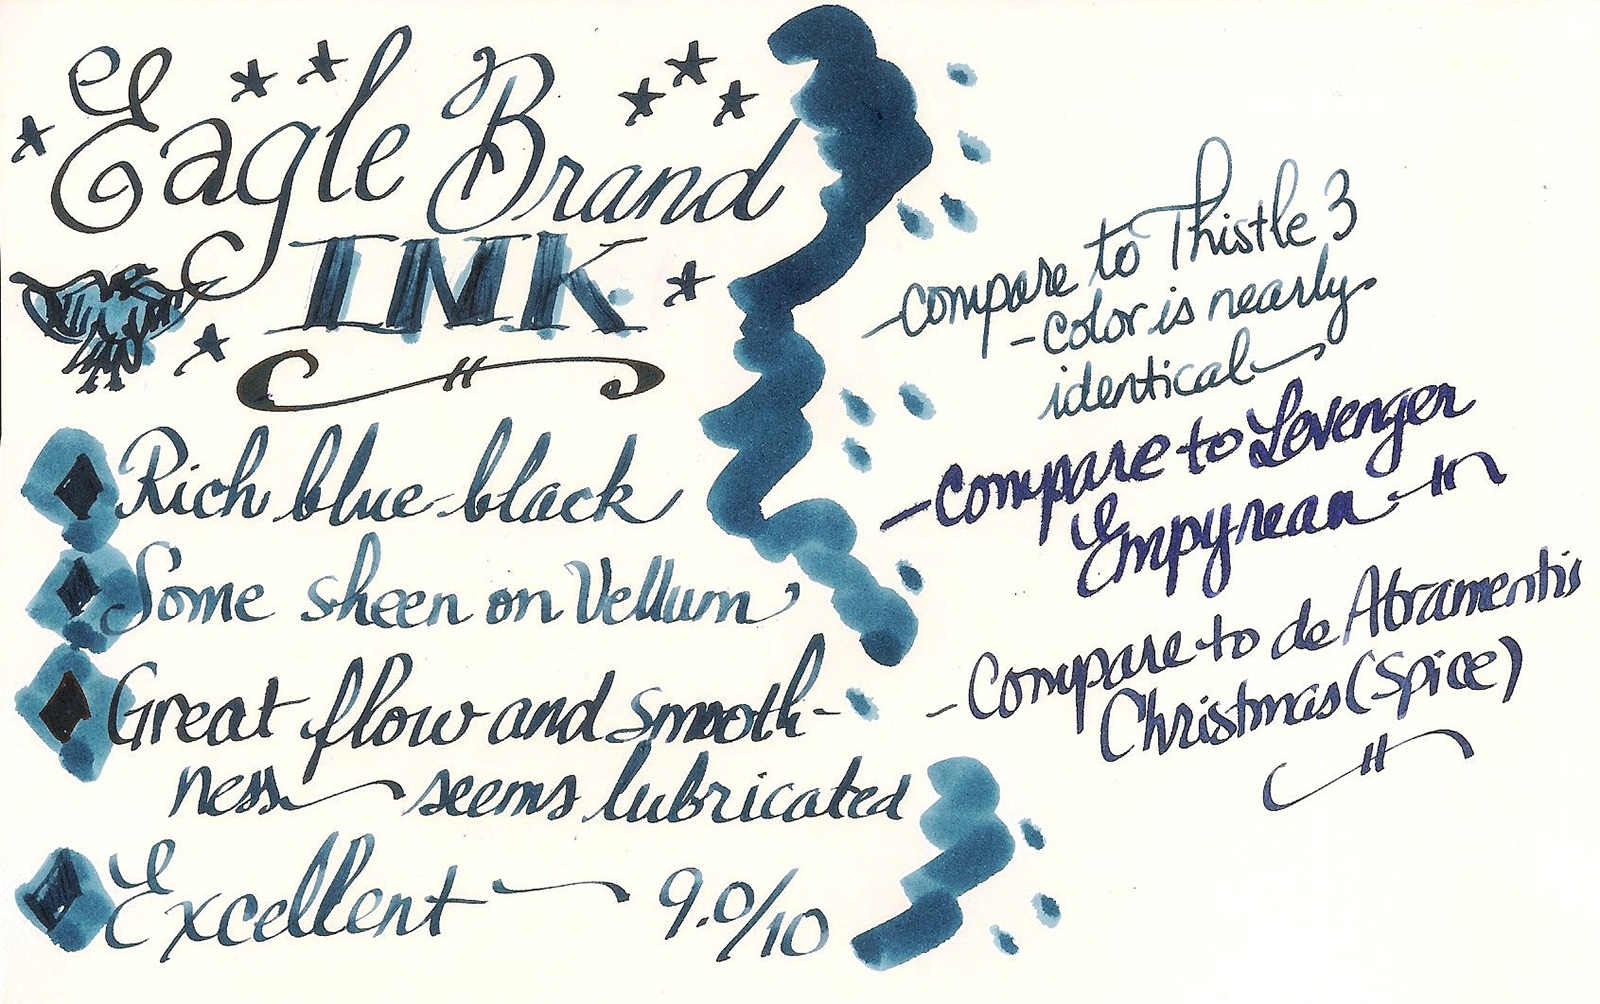 Eagle Brand
INK
Rich blue-black
Some sheen on Vellum
Great flow and smooth-
ness — seems lubricated
Excellent — 9.0/10
- compare to Thistle 3
- color is nearly
identical
- Compare to Levenger
Empyrean
- Compare to de Atramentis
Christmas (Spice)